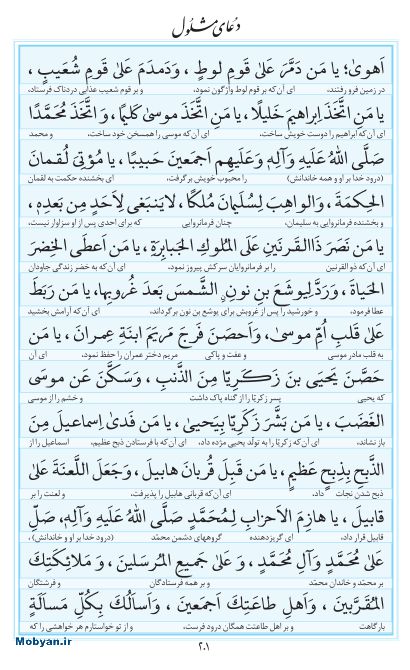 دعای مشلول
اَهوىٰ؛ يا مَن دَمَّرَ عَلىٰ قَومِ لوطٍ ، وَدَمدَمَ عَلىٰ قَومِ شُعَيبٍ ،
در زمین فرو رفتند، ای آن‌که بر قوم لوط واژگون نمود، و بر قوم شعیب عذابی دردناک فرستاد،
يا مَنِ اتَّخَذَ اِبراهيمَ خَليلًا ، يا مَنِ اتَّخَذَ موسىٰ كَليمًا ، وَ اتَّخَذَ مُحَمَّدًا
ای آن‌که ابراهیم را دوست خویش ساخت، ای آن‌که موسی را همسخن خود ساخت، و محمد
صَلَّى اللهُ عَلَيهِ وَآلِهِ وَعَلَيهِم اَجمَعينَ حَبيبًا ، يا مُؤتِىَ لُقمانَ
(درود خدا بر او و همه خاندانش) را محبوب خویش برگرفت، ای بخشنده حکمت به لقمان
الحِكمَةَ ، وَالواهِبَ لِسُلَيمانَ مُلكًا ، لايَنبَغى لِاَحَدٍ مِن بَعدِهِ ،
و بخشنده فرمانروایی به سلیمان، چنان فرمانروایی که برای احدی پس از او سزاوار نیست،
يا مَن نَصَرَ ذَاالقَرنَينِ عَلَى المُلوكِ الجَبابِرَةِ ، يا مَن اَعطَى الخِضرَ
ای آن‌که ذو القرنین را بر فرمانروایان سرکش پیروز نمود، ای آن‌که به خضر زندگی جاودان
الحَياةَ ، وَرَدَّ لِيوشَعَ بنِ نونٍ ، الشَّمسَ بَعدَ غُروبِها، يا مَن رَبَطَ
عطا فرمود، و خورشید را پس از غروبش برای یوشع بن نون برگرداند، ای آن‌که آرامش بخشید
عَلىٰ قَلبِ اُمِّ موسىٰ، وَاَحصَنَ فَرجَ مَريَمَ ابنَةِ عِمرانَ ، يا مَن
به قلب مادر موسی و عفت و پاکی مریم دختر عمران را حفظ نمود، ای آن
حَصَّنَ يَحيَى بنَ زَكَرِيّا مِنَ الذَّنبِ ، وَسَكَّنَ عَن موسَى
که یحیی پسر زکریّا را از گناه پاک داشت و خشم را از موسی
الغَضَبَ ، يا مَن بَشَّرَ زَكَرِيّا بِيَحيىٰ ، يا مَن فَدىٰ اِسماعيلَ مِنَ
باز نشاند، ای آن‌که زکریّا را به تولّد یحیی مژده داد، ای آن‌که با فرستادن ذبح عظیم، اسماعیل را از
الذَّبحِ بِذِبحٍ عَظيمٍ ، يا مَن قَبِلَ قُربانَ هابيلَ ، وَجَعَلَ اللَّعنَةَ عَلىٰ
ذبح شدن نجات داد، ای آن‌که قربانی هابیل را پذیرفت، و لعنت را بر
قابيلَ ، يا هازِمَ الاَحزابِ لِمُحَمَّدٍ صَلَّى اللهُ عَلَيهِ وَآلِهِ، صَلِّ
قابیل قرار داد، ای گریزدهنده گروه‌های دشمن محمّد (درود خدا بر او و خاندانش) ،
عَلىٰ مُحَمَّدٍ وَآلِ مُحَمَّدٍ ، وَ عَلىٰ جَميعِ المُرسَلينَ ، وَ مَلائِكَتِكَ
بر محمّد و خاندان محمّد و بر همه فرستادگان و فرشتگان
المُقَرَّبينَ ، وَاَهلِ طاعَتِكَ اَجمَعينَ ، وَاَسأَلُكَ بِكُلِّ مَسأَلَةٍ
بارگاهت و بر اهل طاعتت همگان درود فرست، و از تو خواستارم هر خواهشی را که
٢٠١
Mobyan.ir